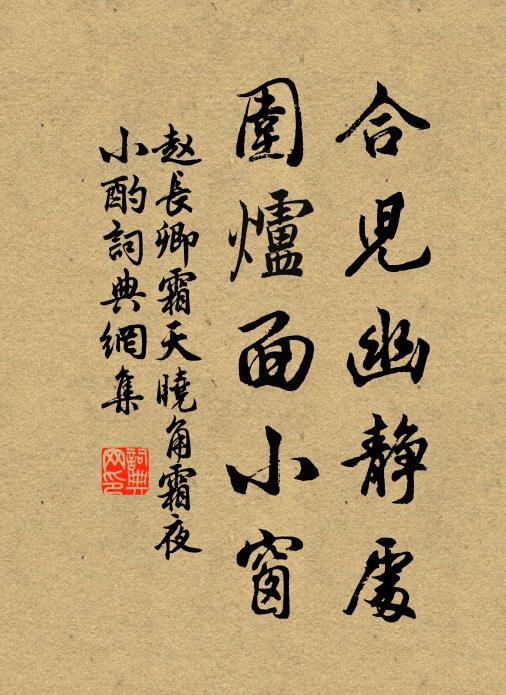 合児幽靜處
圍爐面小窗
赵長卿霜天曉角霜夜
小酌詞典網集
詞典
网印